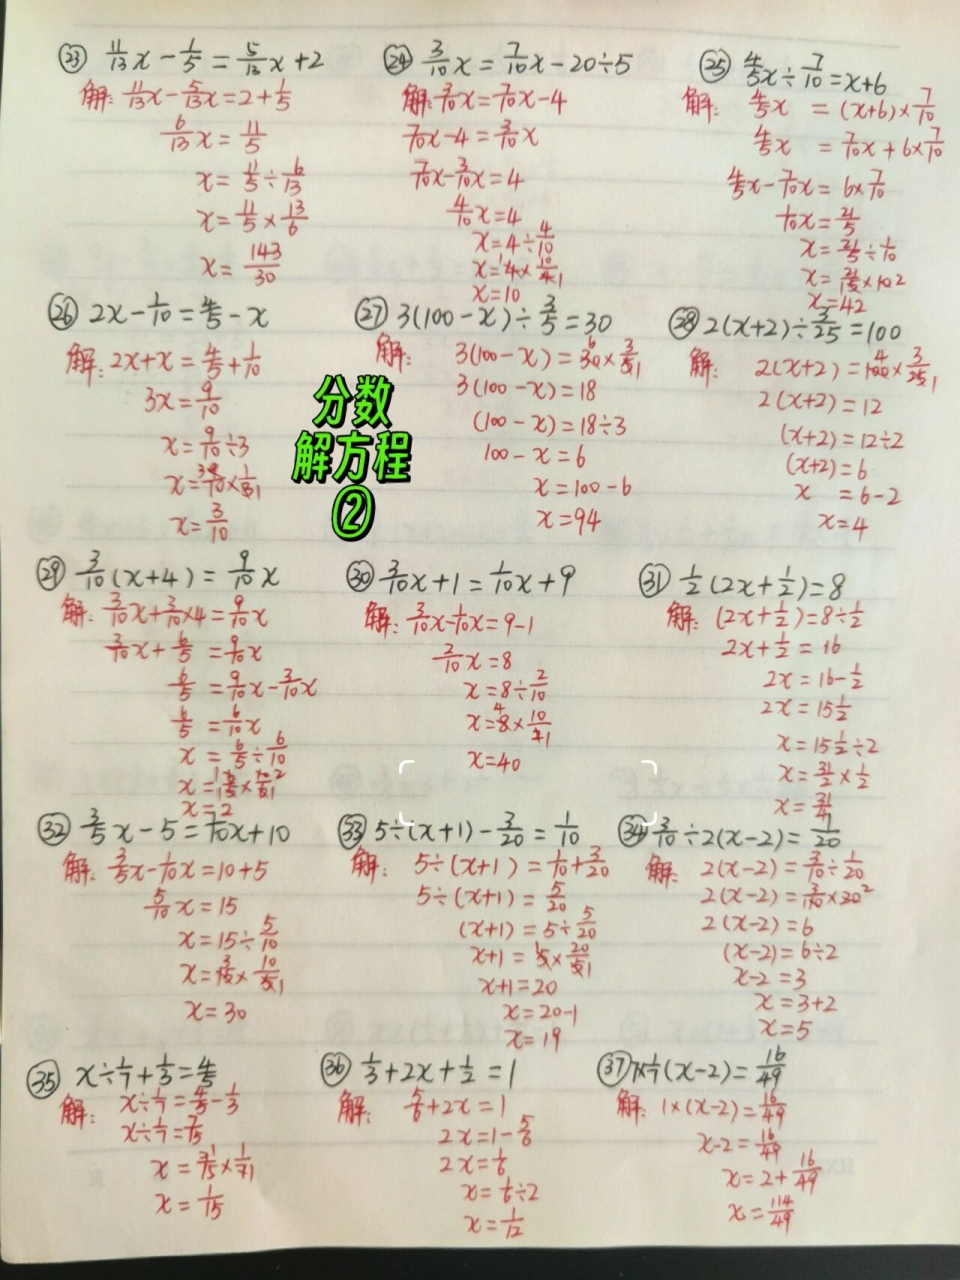 ㉓ 11/13x - 1/5 = 5/13x + 2
解: 11/13x - 5/13x = 2 + 1/5
6/13x = 11/5
x = 11/5 ÷ 6/13
x = 11/5 × 13/6
x = 143/30
㉔ 3/10x = 7/10x - 20÷5
解: 3/10x = 7/10x - 4
7/10x - 4 = 3/10x
7/10x - 3/10x = 4
4/10x = 4
x = 4 ÷ 4/10
x = 4 × 10/4
x = 10
㉕ 4/5x ÷ 7/10 = x + 6
解: 4/5x = (x+6) × 7/10
4/5x = 7/10x + 6×7/10
4/5x - 7/10x = 6×7/10
1/10x = 21/5
x = 21/5 ÷ 1/10
x = 21/5 × 10
x = 42
㉖ 2x - 1/10 = 4/5 - x
解: 2x + x = 4/5 + 1/10
3x = 9/10
x = 9/10 ÷ 3
x = 9/10 × 1/3
x = 3/10
㉗ 3(100 - x) ÷ 3/5 = 30
解: 3(100 - x) = 30 × 3/5
3(100 - x) = 18
(100 - x) = 18÷3
100 - x = 6
x = 100 - 6
x = 94
㉘ 2(x+2) ÷ 3/25 = 100
解: 2(x+2) = 100 × 3/25
2(x+2) = 12
(x+2) = 12÷2
(x+2) = 6
x = 6 - 2
x = 4
分数
解方程
②
㉙ 3/10(x+4) = 9/10x
解: 3/10x + 3/10×4 = 9/10x
3/10x + 6/5 = 9/10x
6/5 = 9/10x - 3/10x
6/5 = 6/10x
x = 6/5 ÷ 6/10
x = 6/5 × 10/6
x = 2
㉚ 3/10x + 1 = 1/10x + 9
解: 3/10x - 1/10x = 9 - 1
2/10x = 8
x = 8 ÷ 2/10
x = 8 × 10/2
x = 40
㉛ 1/2(2x + 1/2) = 8
解: (2x + 1/2) = 8 ÷ 1/2
2x + 1/2 = 16
2x = 16 - 1/2
2x = 15 1/2
x = 15 1/2 ÷ 2
x = 31/2 × 1/2
x = 31/4
㉜ 3/5x - 5 = 1/10x + 10
解: 3/5x - 1/10x = 10 + 5
5/10x = 15
x = 15 ÷ 5/10
x = 15 × 10/5
x = 30
㉝ 5÷(x+1) - 3/20 = 1/10
解: 5÷(x+1) = 1/10 + 3/20
5÷(x+1) = 5/20
(x+1) = 5 ÷ 5/20
x+1 = 5 × 20/5
x+1 = 20
x = 20 - 1
x = 19
㉞ 3/10 ÷ 2(x-2) = 1/20
解: 2(x-2) = 3/10 ÷ 1/20
2(x-2) = 3/10 × 20
2(x-2) = 6
(x-2) = 6÷2
x-2 = 3
x = 3+2
x = 5
㉟ x ÷ 1/7 + 1/3 = 4/5
解: x ÷ 1/7 = 4/5 - 1/3
x ÷ 1/7 = 7/15
x = 7/15 × 1/7
x = 1/15
㊱ 1/3 + 2x + 1/2 = 1
解: 5/6 + 2x = 1
2x = 1 - 5/6
2x = 1/6
x = 1/6 ÷ 2
x = 1/12
㊲ 7×1/7(x-2) = 16/49
解: 1×(x-2) = 16/49
x-2 = 16/49
x = 2 + 16/49
x = 114/49